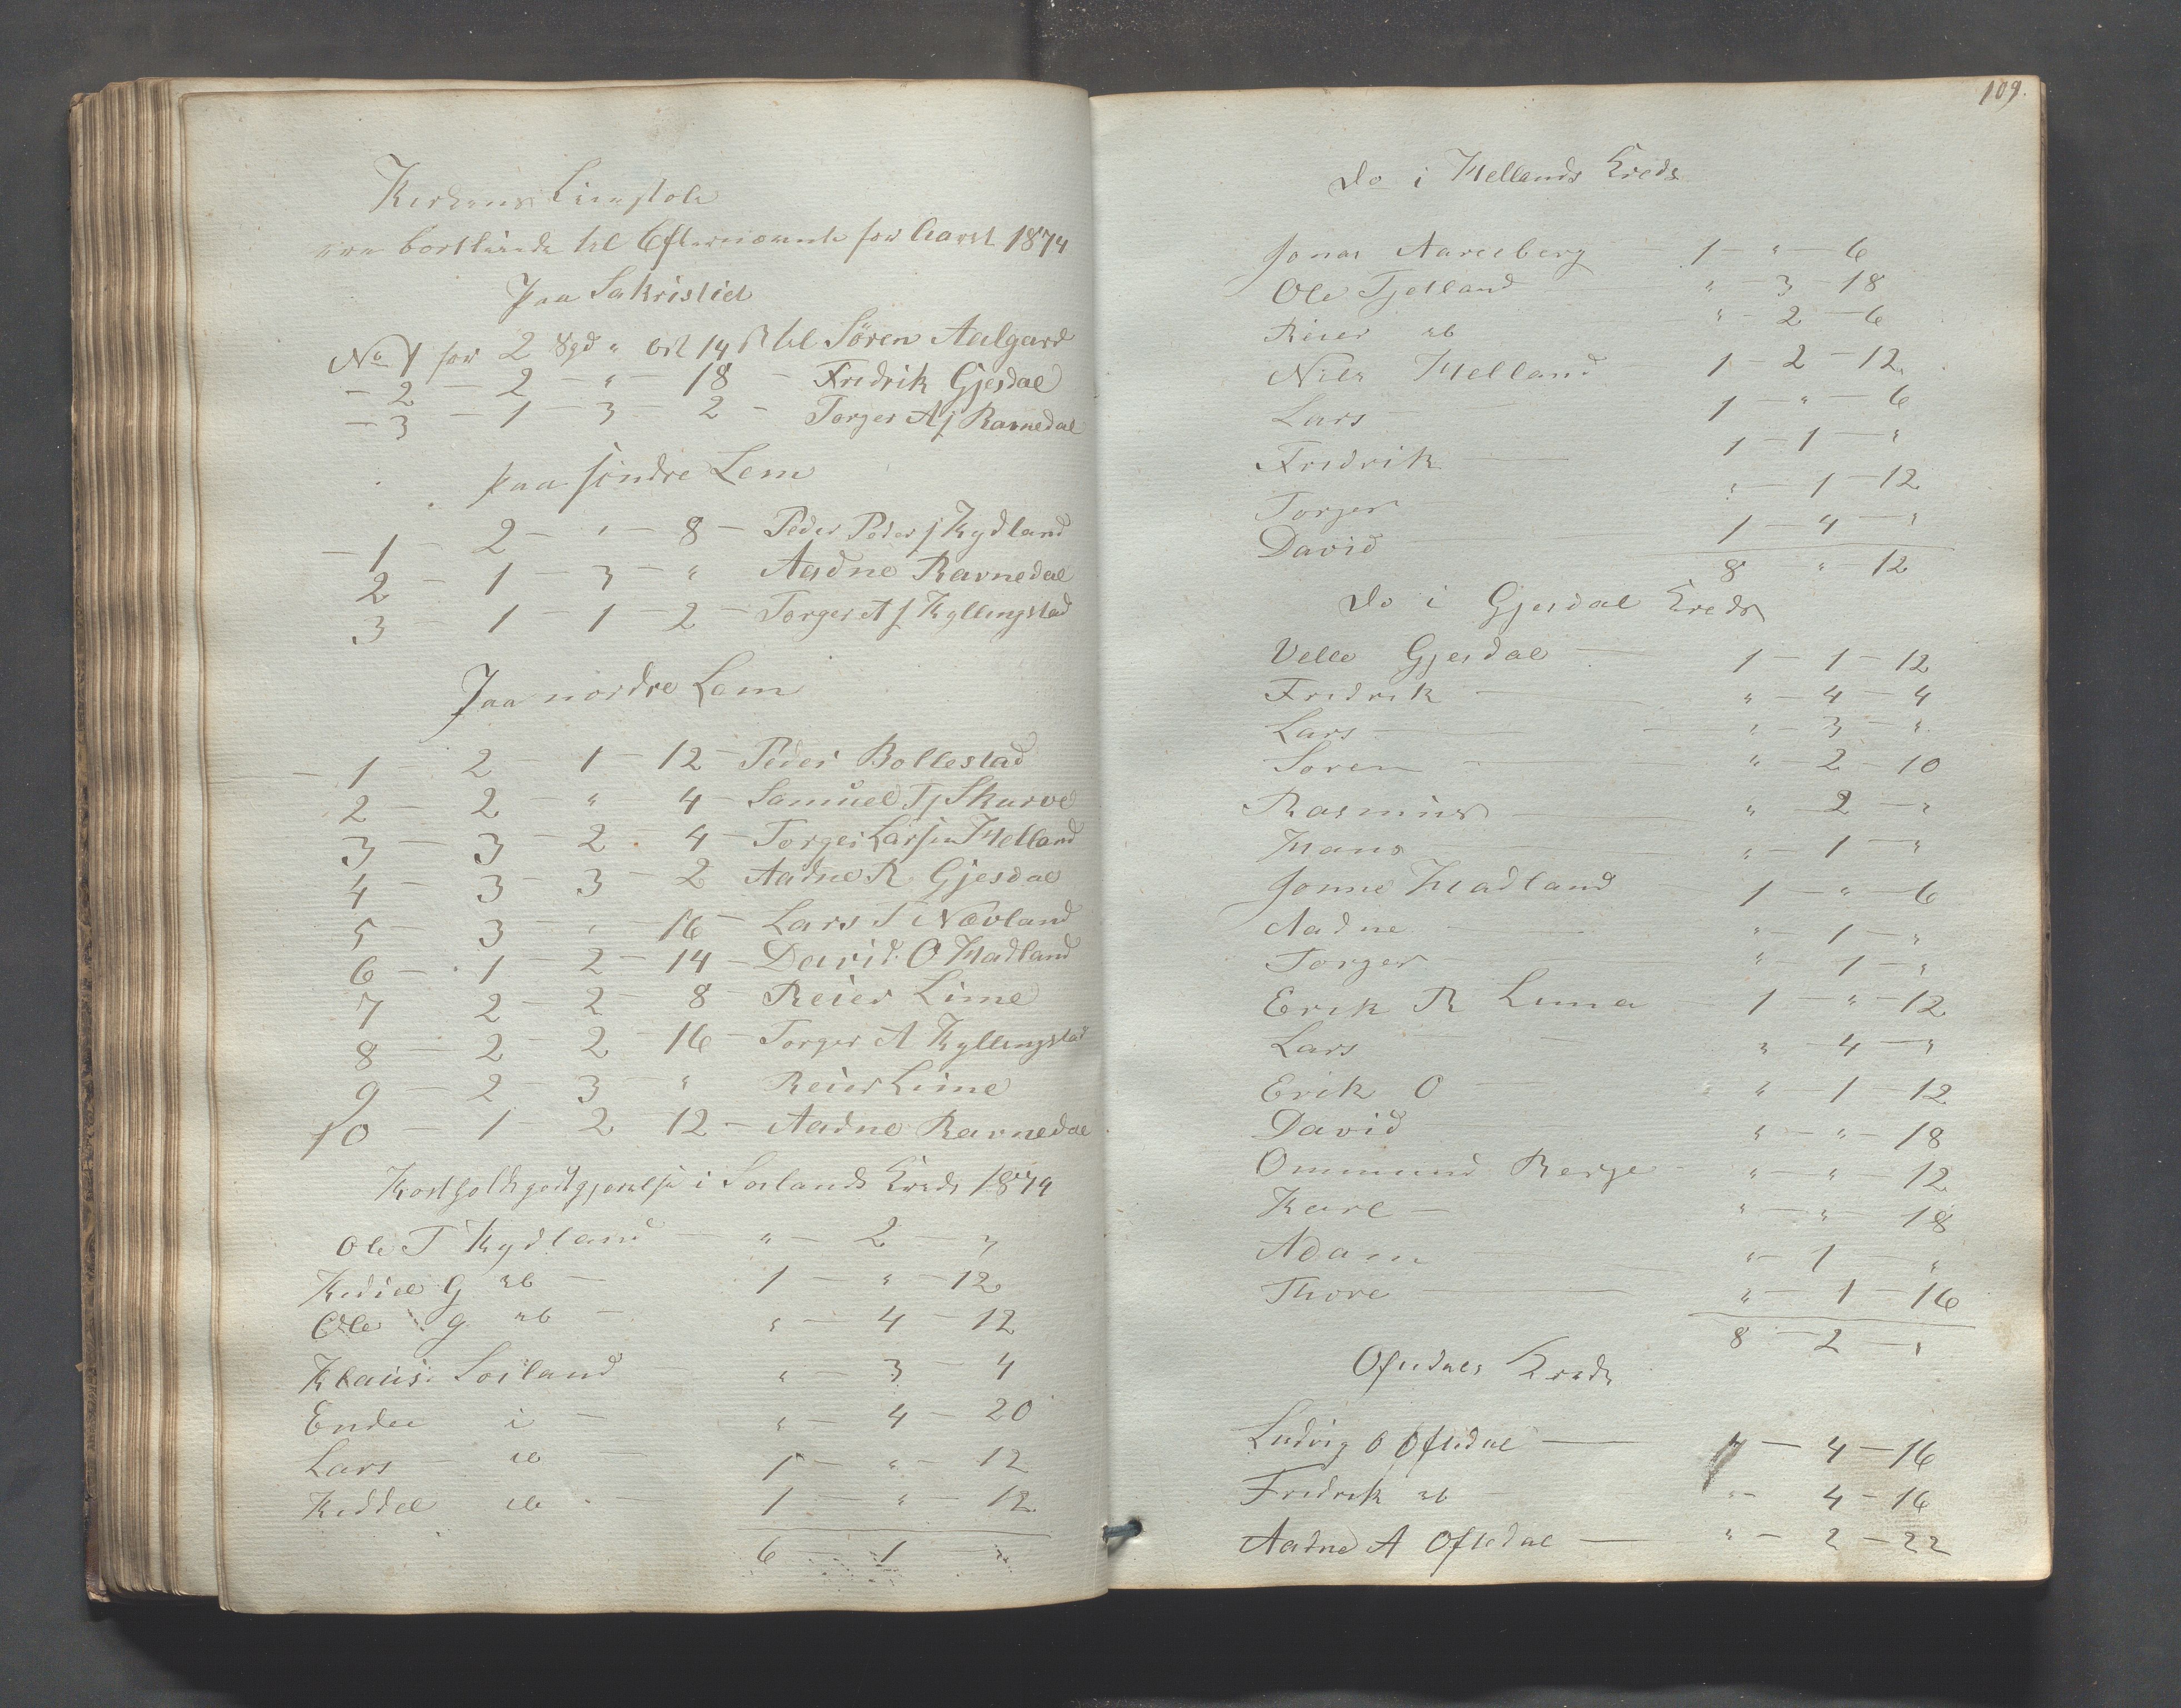 Kirkens Leiestole
ere bortleiede til Efternævnte for Aaret 1874
Paa Sakristiet
No 1 for 2 Spd " Ort 14 ß til Sören Aalgard
- 2 - 2 - " - 18 - Fredrik Gjesdal
- 3 - 1 - 3 - 2 - Torger Aj Ravnedal
paa söndre Lem
- 1 - 2 - " - 8 - Peder Peders Kydland
2 - 1 - 3 - " Aadne Ravnedal
3 - 1 - 1 - 2 - Torger A Kyllingstad
Paa nordre Lem
- 1 - 2 - 1 - 12 - Peder Bollestad
2 - 2 - " 4 - Samuel Tj Skurve
3 - 3 - 2 . 4 - Torger Larsen Helland
4 - 3 - 3 - 2 Aadne R Gjesdal
5 - 3 - " - 16 - Lars T Nævland
6 - 1 - 2 - 14 - David O Madland
7 2 - 2 - 8 - Reier Lime
8 - 2 - 2 - 16 - Torger A Kyllingstad
9 - 2 - 3 - " Reier Lime
10 - 1 - 2 - 12 - Aadne Ravnedal
Kostholdsgodtgjørelse i Soilands Kreds 1874
Ole T Kydland - " - 2 - "
Kediel G ib - 1 - " - 12
Ole G ib - " - 4 - 12
Klaus Soiland " - 3 - 4
Endre i - " 4 - 20
Lars - ib - 1 - " - 12
Keddel ib - 1 - " - 12
6 - 1 - "
109.
Do i Hellands Kreds
Jonas Aareberg - 1 - " - 6
Ole Tjetland - " - 3 - 18
Reier ib " - 2 - 6
Nils Helland - 1 - 2 - 12
Lars - 1 - " - 6
Fredrik - 1 - 1 - "
Torger - " - 1 - 12
David - 1 - 4 - "
8 - " - 12
Do i Gjesdal Kreds
Velle Gjesdal - 1 - 1 - 12
Fredrik - " - 4 - 4
Lars - " - 3 - "
Soren - " - 2 - 10
Rasmus - " - 2 - "
Hans - " - 1 - "
Jonne Madland - 1 - " - 6
Aadne - " - 1 - "
Torger - " - 1 - "
Erik R Lima - 1 - " - 12
Lars - " - 4 - "
Erik O - " - 1 - 12
David - " - " - 18
Ommund Berge - " - " - 12
Karl - " - " - 18
Adam - " - 1 - "
Thore - " - 1 - 16
8 - 2 - "
Oftedals Kreds
Ludvig O Oftedal - " - 4 - 16
Fredrik ib - " - 4 - 16
Aadne A Oftedal - " - 2 - 22